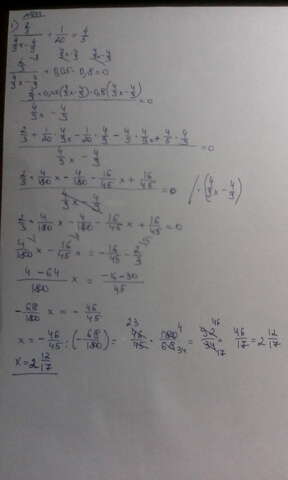 1) 2/3 / (4/9 x - 4/9) + 1/20 = 4/5
2/3 / (4/9 x - 4/9) + 0,05 - 0,8 = 0
(2/3 + 0,05(4/9 x - 4/9) - 0,8(4/9 x - 4/9)) / (4/9 x - 4/9) = 0
(2/3 + 1/20 · 4/9 x - 1/20 · 4/9 - 4/5 · 4/9 x + 4/5 · 4/9) / (4/9 x - 4/9) = 0
(2/3 + 4/180 x - 4/180 - 16/45 x + 16/45) / (4/9 x - 4/9) = 0 / · (4/9 x - 4/9)
2/3 + 4/180 x - 4/180 - 16/45 x + 16/45 = 0
4/180 x - 16/45 x = - 16/45 - 2/3
(4 - 64)/180 x = (-16 - 30)/45
- 68/180 x = - 46/45
x = - 46/45 : (- 68/180) = 46/45 · 180/68 = 92/34 = 46/17 = 2 12/17
x = 2 12/17